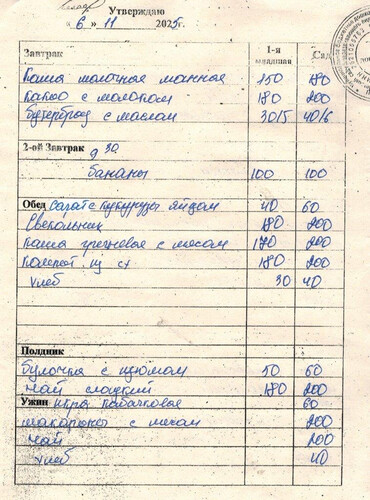 Утверждаю
« 6 » 11 2025г.
Завтрак 1-я младшая Сад
Каша молочная манная 150 180
Какао с молоком 180 200
Бутерброд с маслом 30/5 40/6
2-ой Завтрак 9 30
бананы 100 100
Обед Салат с кукурузы яйцом 40 60
Свекольник 180 200
Каша гречневая с мясом 170 200
Компот из сх 180 200
Хлеб 30 40
Полдник
Булочка с изюмом 50 60
Чай сладкий 180 200
Ужин Икра кабачковая 60
макароны с мясом 200
чай 200
хлеб 40